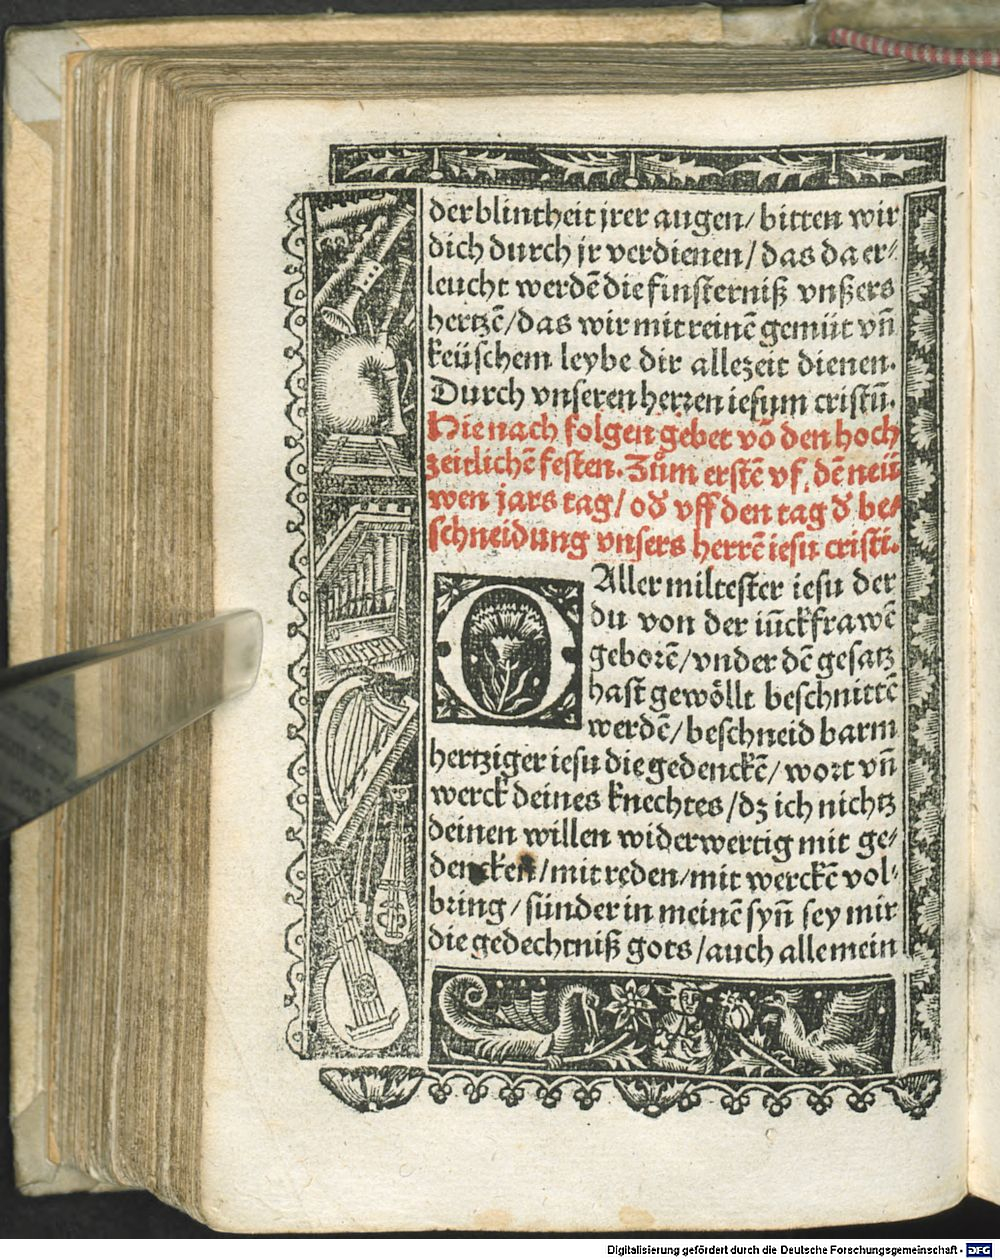 der blintheit jrer augen/ bitten wir
dich durch jr verdienen/ das da er⸗
leucht werdē die finsterniß vnßers
hertzē/ das wir mit reinē gemüt vn̄
keüschem leybe dir allezeit dienen.
Durch vnseren herren iesum cristū.
Hie nach folgen gebet vō den hoch
zeitlichē festen. Zům erstē vf dē neü
wen jars tag/ od̄ vff den tag d̄ be⸗
schneidung vnsers herrē iesu cristi.
O Aller miltester iesu der
du von der iūckfrawē
geborē/ vnder dē gesatz
hast gewöllt beschnittē
werdē/ beschneid barm
hertziger iesu die gedenckē/ wort vn̄
werck deines knechtes/ dz ich nichtz
deinen willen widerwertig mit ge⸗
dencken/ mit reden/ mit werckē vol⸗
bring/ sünder in meinē syn̄ sey mir
die gedechtniß gots/ auch alle mein
Digitalisierung gefördert durch die Deutsche Forschungsgemeinschaft - DFG